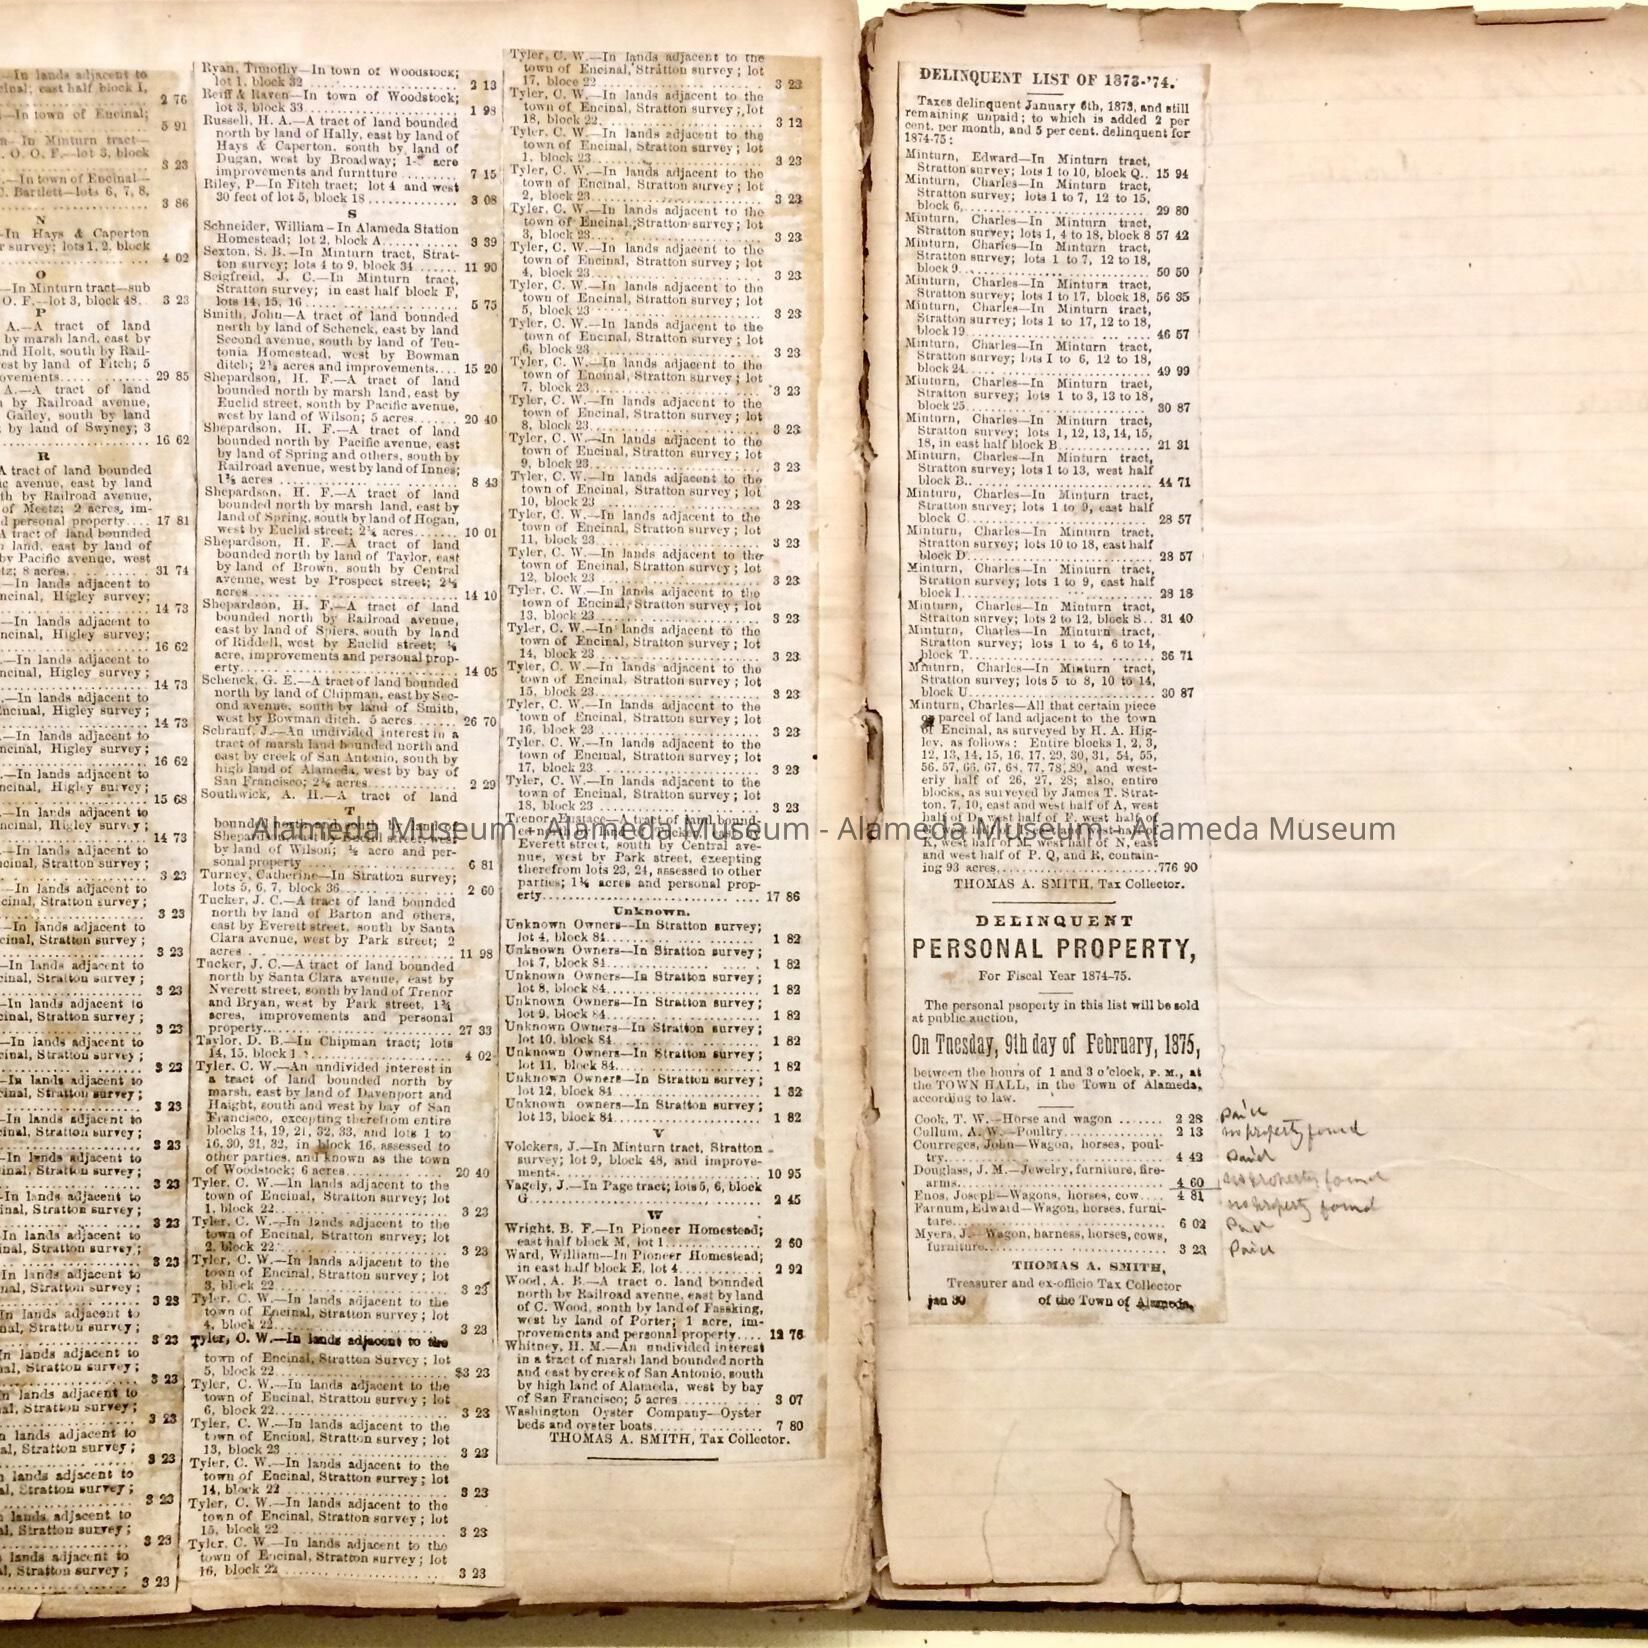 —In lands adjacent to
cinal; east half block I,
2 76
—In town of Encinal;
5 91
n—In Minturn tract—
O. O. F.—lot 3, block
3 23
—In town of Encinal—
C. Bartlett—lots 6, 7, 8,
3 86
N
—In Hays & Caperton
r survey; lots 1, 2, block
4 02
O
—In Minturn tract—sub
O. F.—lot 3, block 48.. 3 23
P
A.—A tract of land
by marsh land, east by
nd Holt, south by Rail-
est by land of Fitch; 5
ovements............ 29 85
A.—A tract of land
by Railroad avenue,
Gailey, south by land
by land of Swyney; 3
16 62
R
A tract of land bounded
ic avenue, east by land
th by Railroad avenue,
of Meetz; 2 acres, im-
d personal property.... 17 81
A tract of land bounded
land, east by land of
by Pacific avenue, west
tz; 8 acres.......... 31 74
—In lands adjacent to
ncinal, Higley survey;
14 73
—In lands adjacent to
ncinal, Higley survey;
16 62
—In lands adjacent to
ncinal, Higley survey;
14 73
—In lands adjacent to
Encinal, Higley survey;
14 73
—In lands adjacent to
ncinal, Higley survey;
16 62
—In lands adjacent to
ncinal, Higley survey;
15 68
—In lands adjacent to
ncinal, Higley survey;
14 73
—In lands adjacent to
ncinal, Stratton survey;
3 23
—In lands adjacent to
cinal, Stratton survey;
3 23
—In lands adjacent to
cinal, Stratton survey;
3 23
—In lands adjacent to
cinal, Stratton survey;
3 23
—In lands adjacent to
cinal, Stratton survey;
3 23
—In lands adjacent to
cinal, Stratton survey;
3 23
—In lands adjacent to
cinal, Stratton survey;
3 23
—In lands adjacent to
cinal, Stratton survey;
3 23
—In lands adjacent to
cinal, Stratton survey;
3 23
—In lands adjacent to
cinal, Stratton survey;
3 23
—In lands adjacent to
inal, Stratton survey;
3 23
—In lands adjacent to
nal, Stratton survey;
3 23
In lands adjacent to
nal, Stratton survey;
3 23
In lands adjacent to
nal, Stratton survey;
3 23
n lands adjacent to
al, Stratton survey;
3 23
n lands adjacent to
al, Stratton survey;
3 23
lands adjacent to
al, Stratton survey;
3 23
lands adjacent to
al, Stratton survey;
3 23
lands adjacent to
l, Stratton survey;
3 23
Ryan, Timothy—In town of Woodstock;
lot 1, block 32 .............. 2 13
Reiff & Raven—In town of Woodstock;
lot 3, block 33.............. 1 98
Russell, H. A.—A tract of land bounded
north by land of Hally, east by land of
Hays & Caperton, south by land of
Dugan, west by Broadway; 1- acre
improvements and furntture ........ 7 15
Riley, P—In Fitch tract; lot 4 and west
30 feet of lot 5, block 18............ 3 08
S
Schneider, William—In Alameda Station
Homestead; lot 2, block A.......... 3 39
Sexton, S. B.—In Minturn tract, Strat-
ton survey; lots 4 to 9, block 34 ...... 11 90
Seigfreid, J. C.—In Minturn tract,
Stratton survey; in east half block F,
lots 14, 15, 16 .............. 5 75
Smith, John—A tract of land bounded
north by land of Schenck, east by land
Second avenue, south by land of Teu-
tonia Homestead, west by Bowman
ditch; 2½ acres and improvements.... 15 20
Shepardson, H. F.—A tract of land
bounded north by marsh land, east by
Euclid street, south by Pacific avenue,
west by land of Wilson; 5 acres...... 20 40
Shepardson, H. F.—A tract of land
bounded north by Pacific avenue, east
by land of Spring and others, south by
Railroad avenue, west by land of Innes;
1⅞ acres .............. 8 43
Shepardson, H. F.—A tract of land
bounded north by marsh land, east by
land of Spring, south by land of Hogan,
west by Euclid street; 2¼ acres...... 10 01
Shepardson, H. F.—A tract of land
bounded north by land of Taylor, east
by land of Brown, south by Central
avenue, west by Prospect street; 2½
acres .............. 14 10
Shepardson, H. F.—A tract of land
bounded north by Railroad avenue,
east by land of Spiers, south by land
of Riddell, west by Euclid street; ¼
acre, improvements and personal prop-
erty.............. 14 05
Schenck, G. E.—A tract of land bounded
north by land of Chipman, east by Sec-
ond avenue, south by land of Smith,
west by Bowman ditch. 5 acres ...... 26 70
Schrauf, J.—An undivided interest in a
tract of marsh land bounded north and
east by creek of San Antonio, south by
high land of Alameda, west by bay of
San Francisco; 2½ acres............ 2 29
Southwick, A. H.—A tract of land
T
by land of Wilson; ½ acro and per-
sonal property.............. 6 81
Turney, Catherine—In Stratton survey;
lots 5, 6, 7, block 36.............. 2 60
Tucker, J. C.—A tract of land bounded
north by land of Barton and others,
east by Everett street, south by Santa
Clara avenue, west by Park street; 2
acres .............. 11 98
Tucker, J. C.—A tract of land bounded
north by Santa Clara avenue, east by
Nverett street, south by land of Trenor
and Bryan, west by Park street, 1¾
acres, improvements and personal
property.............. 27 33
Taylor, D. B.—In Chipman tract; lots
14, 15, block 1 .............. 4 02
Tyler, C. W.—An undivided interest in
a tract of land bounded north by
marsh, east by land of Davenport and
Haight, south and west by bay of San
Francisco, excepting therefrom entire
blocks 14, 19, 21, 32, 33, and lots 1 to
16, 30, 31, 32, in block 16, assessed to
other parties, and known as the town
of Woodstock; 6 acres.............. 20 40
Tyler, C. W.—In lands adjacent to the
town of Encinal, Stratton survey; lot
1, block 22.............. 3 23
Tyler, C. W.—In lands adjacent to the
town of Encinal, Stratton survey; lot
2, block 22.............. 3 23
Tyler, C. W.—In lands adjacent to the
town of Encinal, Stratton survey; lot
3, block 22.............. 3 23
Tyler, C. W.—In lands adjacent to the
town of Encinal, Stratton survey; lot
4, block 22.............. 3 23
Tyler, C. W.—In lands adjacent to the
town of Encinal, Stratton Survey; lot
5, block 22.............. $3 23
Tyler, C. W.—In lands adjacent to the
town of Encinal, Stratton survey; lot
6, block 22.............. 3 23
Tyler, C. W.—In lands adjacent to the
town of Encinal, Stratton survey; lot
13, block 23.............. 3 23
Tyler, C. W.—In lands adjacent to the
town of Encinal, Stratton survey; lot
14, block 22.............. 3 23
Tyler, C. W.—In lands adjacent to the
town of Encinal, Stratton survey; lot
15, block 22.............. 3 23
Tyler, C. W.—In lands adjacent to the
town of Encinal, Stratton survey; lot
16, block 22.............. 3 23
Tyler, C. W.—In lands adjacent to the
town of Encinal, Stratton survey; lot
17, bloce 22.............. 3 23
Tyler, C. W.—In lands adjacent to the
town of Encinal, Stratton survey; lot
18, block 22.............. 3 12
Tyler, C. W.—In lands adjacent to the
town of Encinal, Stratton survey; lot
1, block 23.............. 3 23
Tyler, C. W.—In lands adjacent to the
town of Encinal, Stratton survey; lot
2, block 23.............. 3 23
Tyler, C. W.—In lands adjacent to the
town of Encinal, Stratton survey; lot
3, block 23.............. 3 23
Tyler, C. W.—In lands adjacent to the
town of Encinal, Stratton survey; lot
4, block 23.............. 3 23
Tyler, C. W.—In lands adjacent to the
town of Encinal, Stratton survey; lot
5, block 23.............. 3 23
Tyler, C. W.—In lands adjacent to the
town of Encinal, Stratton survey; lot
6, block 23.............. 3 23
Tyler, C. W.—In lands adjacent to the
town of Encinal, Stratton survey; lot
7, block 23.............. 3 23
Tyler, C. W.—In lands adjacent to the
town of Encinal, Stratton survey; lot
8, block 23.............. 3 23
Tyler, C. W.—In lands adjacent to the
town of Encinal, Stratton survey; lot
9, block 23.............. 3 23
Tyler, C. W.—In lands adjacent to the
town of Encinal, Stratton survey; lot
10, block 23.............. 3 23
Tyler, C. W.—In lands adjacent to the
town of Encinal, Stratton survey; lot
11, block 23.............. 3 23
Tyler, C. W.—In lands adjacent to the
town of Encinal, Stratton survey; lot
12, block 23.............. 3 23
Tyler, C. W.—In lands adjacent to the
town of Encinal, Stratton survey; lot
13, block 23.............. 3 23
Tyler, C. W.—In lands adjacent to the
town of Encinal, Stratton survey; lot
14, block 23.............. 3 23
Tyler, C. W.—In lands adjacent to the
town of Encinal, Stratton survey; lot
15, block 23.............. 3 23
Tyler, C. W.—In lands adjacent to the
town of Encinal, Stratton survey; lot
16, block 23.............. 3 23
Tyler, C. W.—In lands adjacent to the
town of Encinal, Stratton survey; lot
17, block 23.............. 3 23
Tyler, C. W.—In lands adjacent to the
town of Encinal, Stratton survey; lot
18, block 23.............. 3 23
Trenor, Eustace—A tract of land bound-
Everett street, south by Central ave-
nue, west by Park street, exeepting
therefrom lots 23, 24, assessed to other
parties; 1¼ acres and personal prop-
erty.............. 17 86
Unknown.
Unknown Owners—In Stratton survey;
lot 4, block 84.............. 1 82
Unknown Owners—In Stratton survey;
lot 7, block 84.............. 1 82
Unknown Owners—In Stratton survey;
lot 8, block 84.............. 1 82
Unknown Owners—In Stratton survey;
lot 9, block 84.............. 1 82
Unknown Owners—In Stratton survey;
lot 10, block 84.............. 1 82
Unknown Owners—In Stratton survey;
lot 11, block 84.............. 1 82
Unknown Owners—In Stratton survey;
lot 12, block 84.............. 1 82
Unknown owners—In Stratton survey;
lot 13, block 84.............. 1 82
V
Volckers, J.—In Minturn tract, Stratton
survey; lot 9, block 48, and improve-
ments.............. 10 95
Vagely, J.—In Page tract; lots 5, 6, block
G.............. 2 45
W
Wright, B. F.—In Pioneer Homestead;
east half block M, lot 1.............. 2 60
Ward, William—In Pioneer Homestead;
in east half block E, lot 4.............. 2 92
Wood, A. B.—A tract o. land bounded
north by Railroad avenue, east by land
of C. Wood, south by land of Fassking,
west by land of Porter; 1 acre, im-
provements and personal property.... 12 76
Whitney, H. M.—An undivided interest
in a tract of marsh land bounded north
and east by creek of San Antonio, south
by high land of Alameda, west by bay
of San Francisco; 5 acres.............. 3 07
Washington Oyster Company—Oyster
beds and oyster boats.............. 7 80
THOMAS A. SMITH, Tax Collector.
DELINQUENT LIST OF 1873-'74.
Taxes delinquent January 6th, 1873, and still
remaining unpaid; to which is added 2 per
cent. per month, and 5 per cent. delinquent for
1874-75:
Minturn, Edward—In Minturn tract,
Stratton survey; lots 1 to 10, block Q.. 15 94
Minturn, Charles—In Minturn tract,
Stratton survey; lots 1 to 7, 12 to 15,
block 6.............. 29 80
Minturn, Charles—In Minturn tract,
Stratton survey; lots 1, 4 to 18, block 8 57 42
Minturn, Charles—In Minturn tract,
Stratton survey; lots 1 to 7, 12 to 18,
block 9.............. 50 50
Minturn, Charles—In Minturn tract,
Stratton survey; lots 1 to 17, block 18, 56 35
Minturn, Charles—In Minturn tract,
Stratton survey; lots 1 to 17, 12 to 18,
block 19.............. 46 57
Minturn, Charles—In Minturn tract,
Stratton survey; lots 1 to 6, 12 to 18,
block 24.............. 49 99
Minturn, Charles—In Minturn tract,
Stratton survey; lots 1 to 3, 13 to 18,
block 25.............. 30 87
Minturn, Charles—In Minturn tract,
Stratton survey; lots 1, 12, 13, 14, 15,
18, in east half block B.............. 21 31
Minturn, Charles—In Minturn tract,
Stratton survey; lots 1 to 13, west half
block B.............. 44 71
Minturn, Charles—In Minturn tract,
Stratton survey; lots 1 to 9, east half
block C.............. 28 57
Minturn, Charles—In Minturn tract,
Stratton survey; lots 10 to 18, east half
block D.............. 28 57
Minturn, Charles—In Minturn tract,
Stratton survey; lots 1 to 9, east half
block I.............. 28 18
Minturn, Charles—In Minturn tract,
Stratton survey; lots 2 to 12, block S.. 31 40
Minturn, Charles—In Minturn tract,
Stratton survey; lots 1 to 4, 6 to 14,
block T.............. 36 71
Minturn, Charles—In Minturn tract,
Stratton survey; lots 5 to 8, 10 to 14,
block U.............. 30 87
Minturn, Charles—All that certain piece
or parcel of land adjacent to the town
of Encinal, as surveyed by H. A. Hig-
ley, as follows: Entire blocks 1, 2, 3,
12, 13, 14, 15, 16, 17, 29, 30, 31, 54, 55,
56, 57, 66, 67, 68, 77, 78, 89, and west-
erly half of 26, 27, 28; also, entire
blocks, as surveyed by James T. Strat-
ton, 7, 10, east and west half of A, west
half of D, west half of F, west half of
K, west half of M, west half of N, east
and west half of P, Q, and R, contain-
ing 93 acres..............776 90
THOMAS A. SMITH, Tax Collector.
DELINQUENT
PERSONAL PROPERTY,
For Fiscal Year 1874-75.
The personal psoperty in this list will be sold
at public auction,
On Tuesday, 9th day of February, 1875,
between the hours of 1 and 3 o'clock, P. M., at
the TOWN HALL, in the Town of Alameda,
according to law.
Cook, T. W.—Horse and wagon ....... 2 28 Paid
Cullum, A. W.—Poultry.............. 2 13 no property found
Courreges, John—Wagon, horses, poul-
try.............. 4 42 Paid
Douglass, J. M.—Jewelry, furniture, fire-
arms.............. 4 60 no property found
Enos, Joseph—Wagons, horses, cow.... 4 81 no property found
Farnum, Edward—Wagon, horses, furni-
ture.............. 6 02 Paid
Myers, J.—Wagon, harness, horses, cows,
furniture.............. 3 23 Paid
THOMAS A. SMITH,
Treasurer and ex-officio Tax Collector
jan 30 of the Town of Alameda.
Alameda Museum - Alameda Museum - Alameda Museum - Alameda Museum